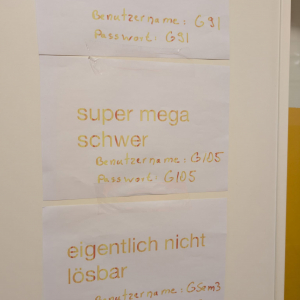 Benutzername: G91
Passwort: G91
super mega
schwer
Benutzername: G105
Passwort: G105
eigentlich nicht
lösbar
Benutzername: GSom3